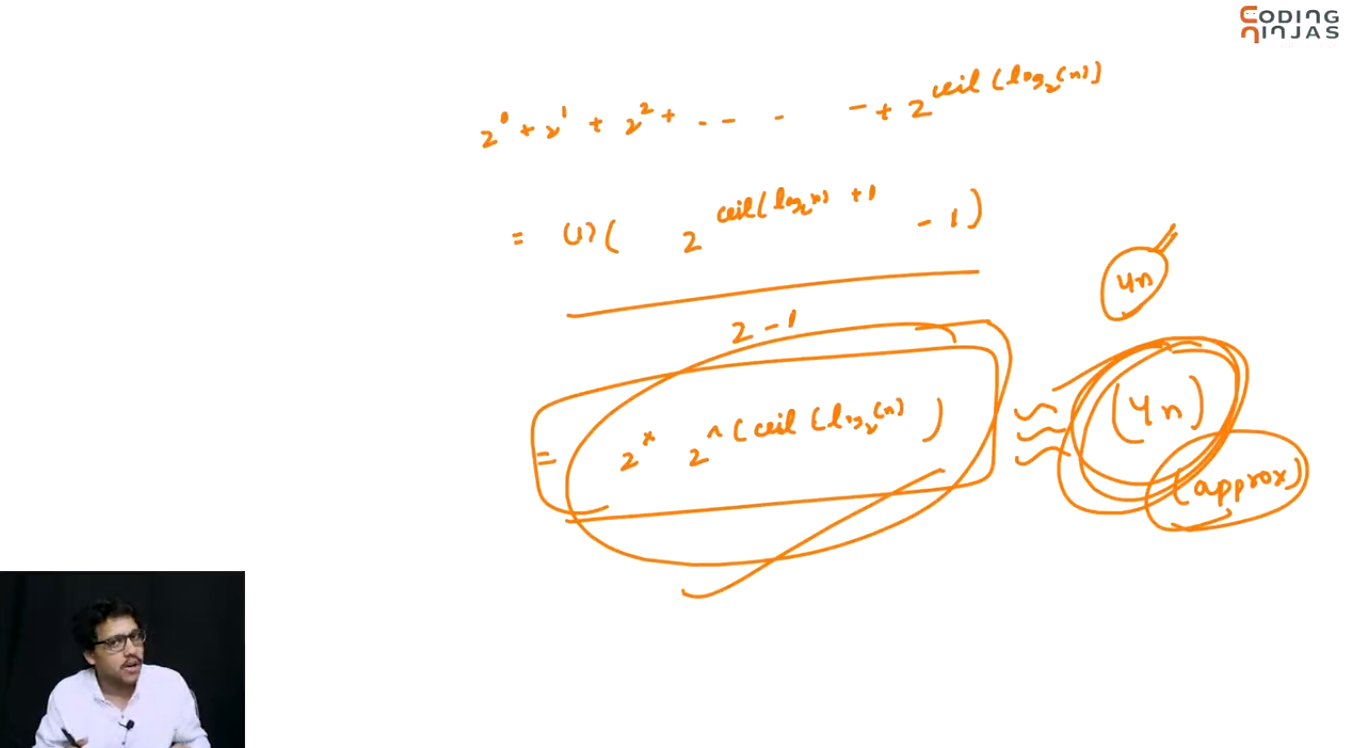 CODING
NINJAS
2^0 + 2^1 + 2^2 + -- - - + 2^ceil(log_2(n))
= (1)( 2^ceil(log_2 n) + 1 - 1)
2 - 1
4n
= 2 * 2^(ceil(log_2(n)) ≈ (4n)
(approx)